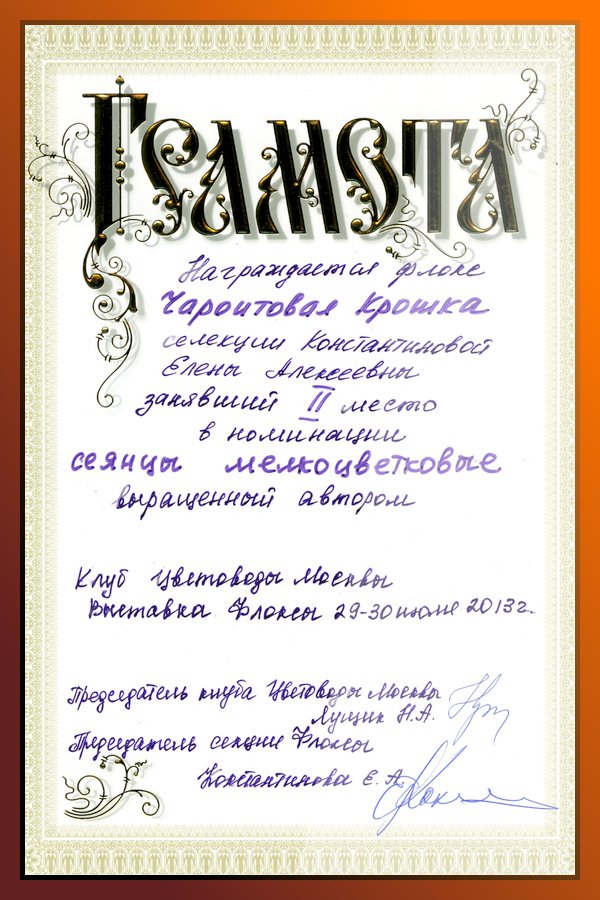 Грамота
Награждается флокс
Чароитовая Крошка
селекции Константиновой
Елены Алексеевны
занявший II место
в номинации
сеянцы мелкоцветковые
выращенный автором
Клуб Цветоводы Москвы
Выставка Флоксы 29-30 июле 2013 г.
Председатель клуба Цветоводы Москвы
Лущик Н.А.
Председатель секции Флоксы
Константинова Е.А.